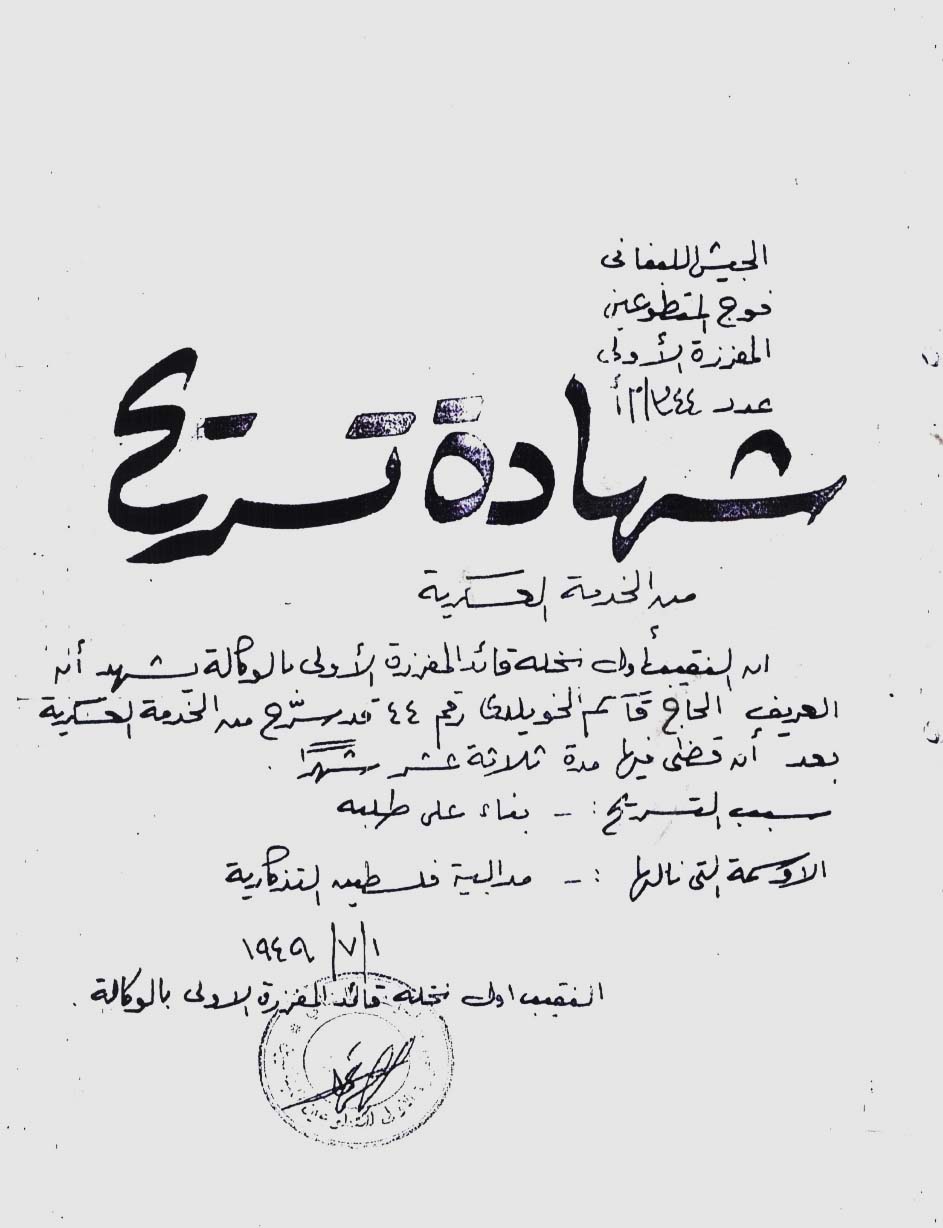 الجيش اللبناني
فوج المتطوعين
المفرزة الأولى
عدد ٣٤٤/م/أ
شهادة تسريح
من الخدمة العسكرية
ان النقيب أول نخله قائد المفرزة الأولى بالوكالة يشهد أنه
العريف الحاج قاسم الخويلدي رقم ٤٤ قد سرّح من الخدمة العسكرية
بعد أن قضى فيها مدة ثلاثة عشر شهرًا .
سبب التسريح :- بناء على طلبه
الاوسمة التي نالها :- مدالية فلسطين التذكارية
١/٧/١٩٤٩
النقيب اول نخله قائد المفرزة الاولى بالوكالة .